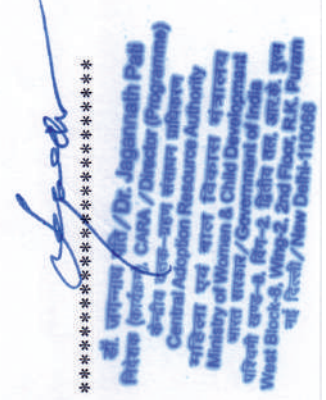 ************************
डॉ. जगन्नाथ पति/Dr. Jagannath Pati
निदेशक (कार्यक्रम), CARA/Director (Programme)
केन्द्रीय दत्तक-ग्रहण संसाधन प्राधिकरण
Central Adoption Resource Authority
महिला एवं बाल विकास मंत्रालय
Ministry of Woman & Child Development
भारत सरकार/Government of India
पश्चिमी खण्ड-8, विंग-2, द्वितीय तल, आर.के. पुरम
West Block-8, Wing-2, 2nd Floor, R.K. Puram
नई दिल्ली/New Delhi-110066